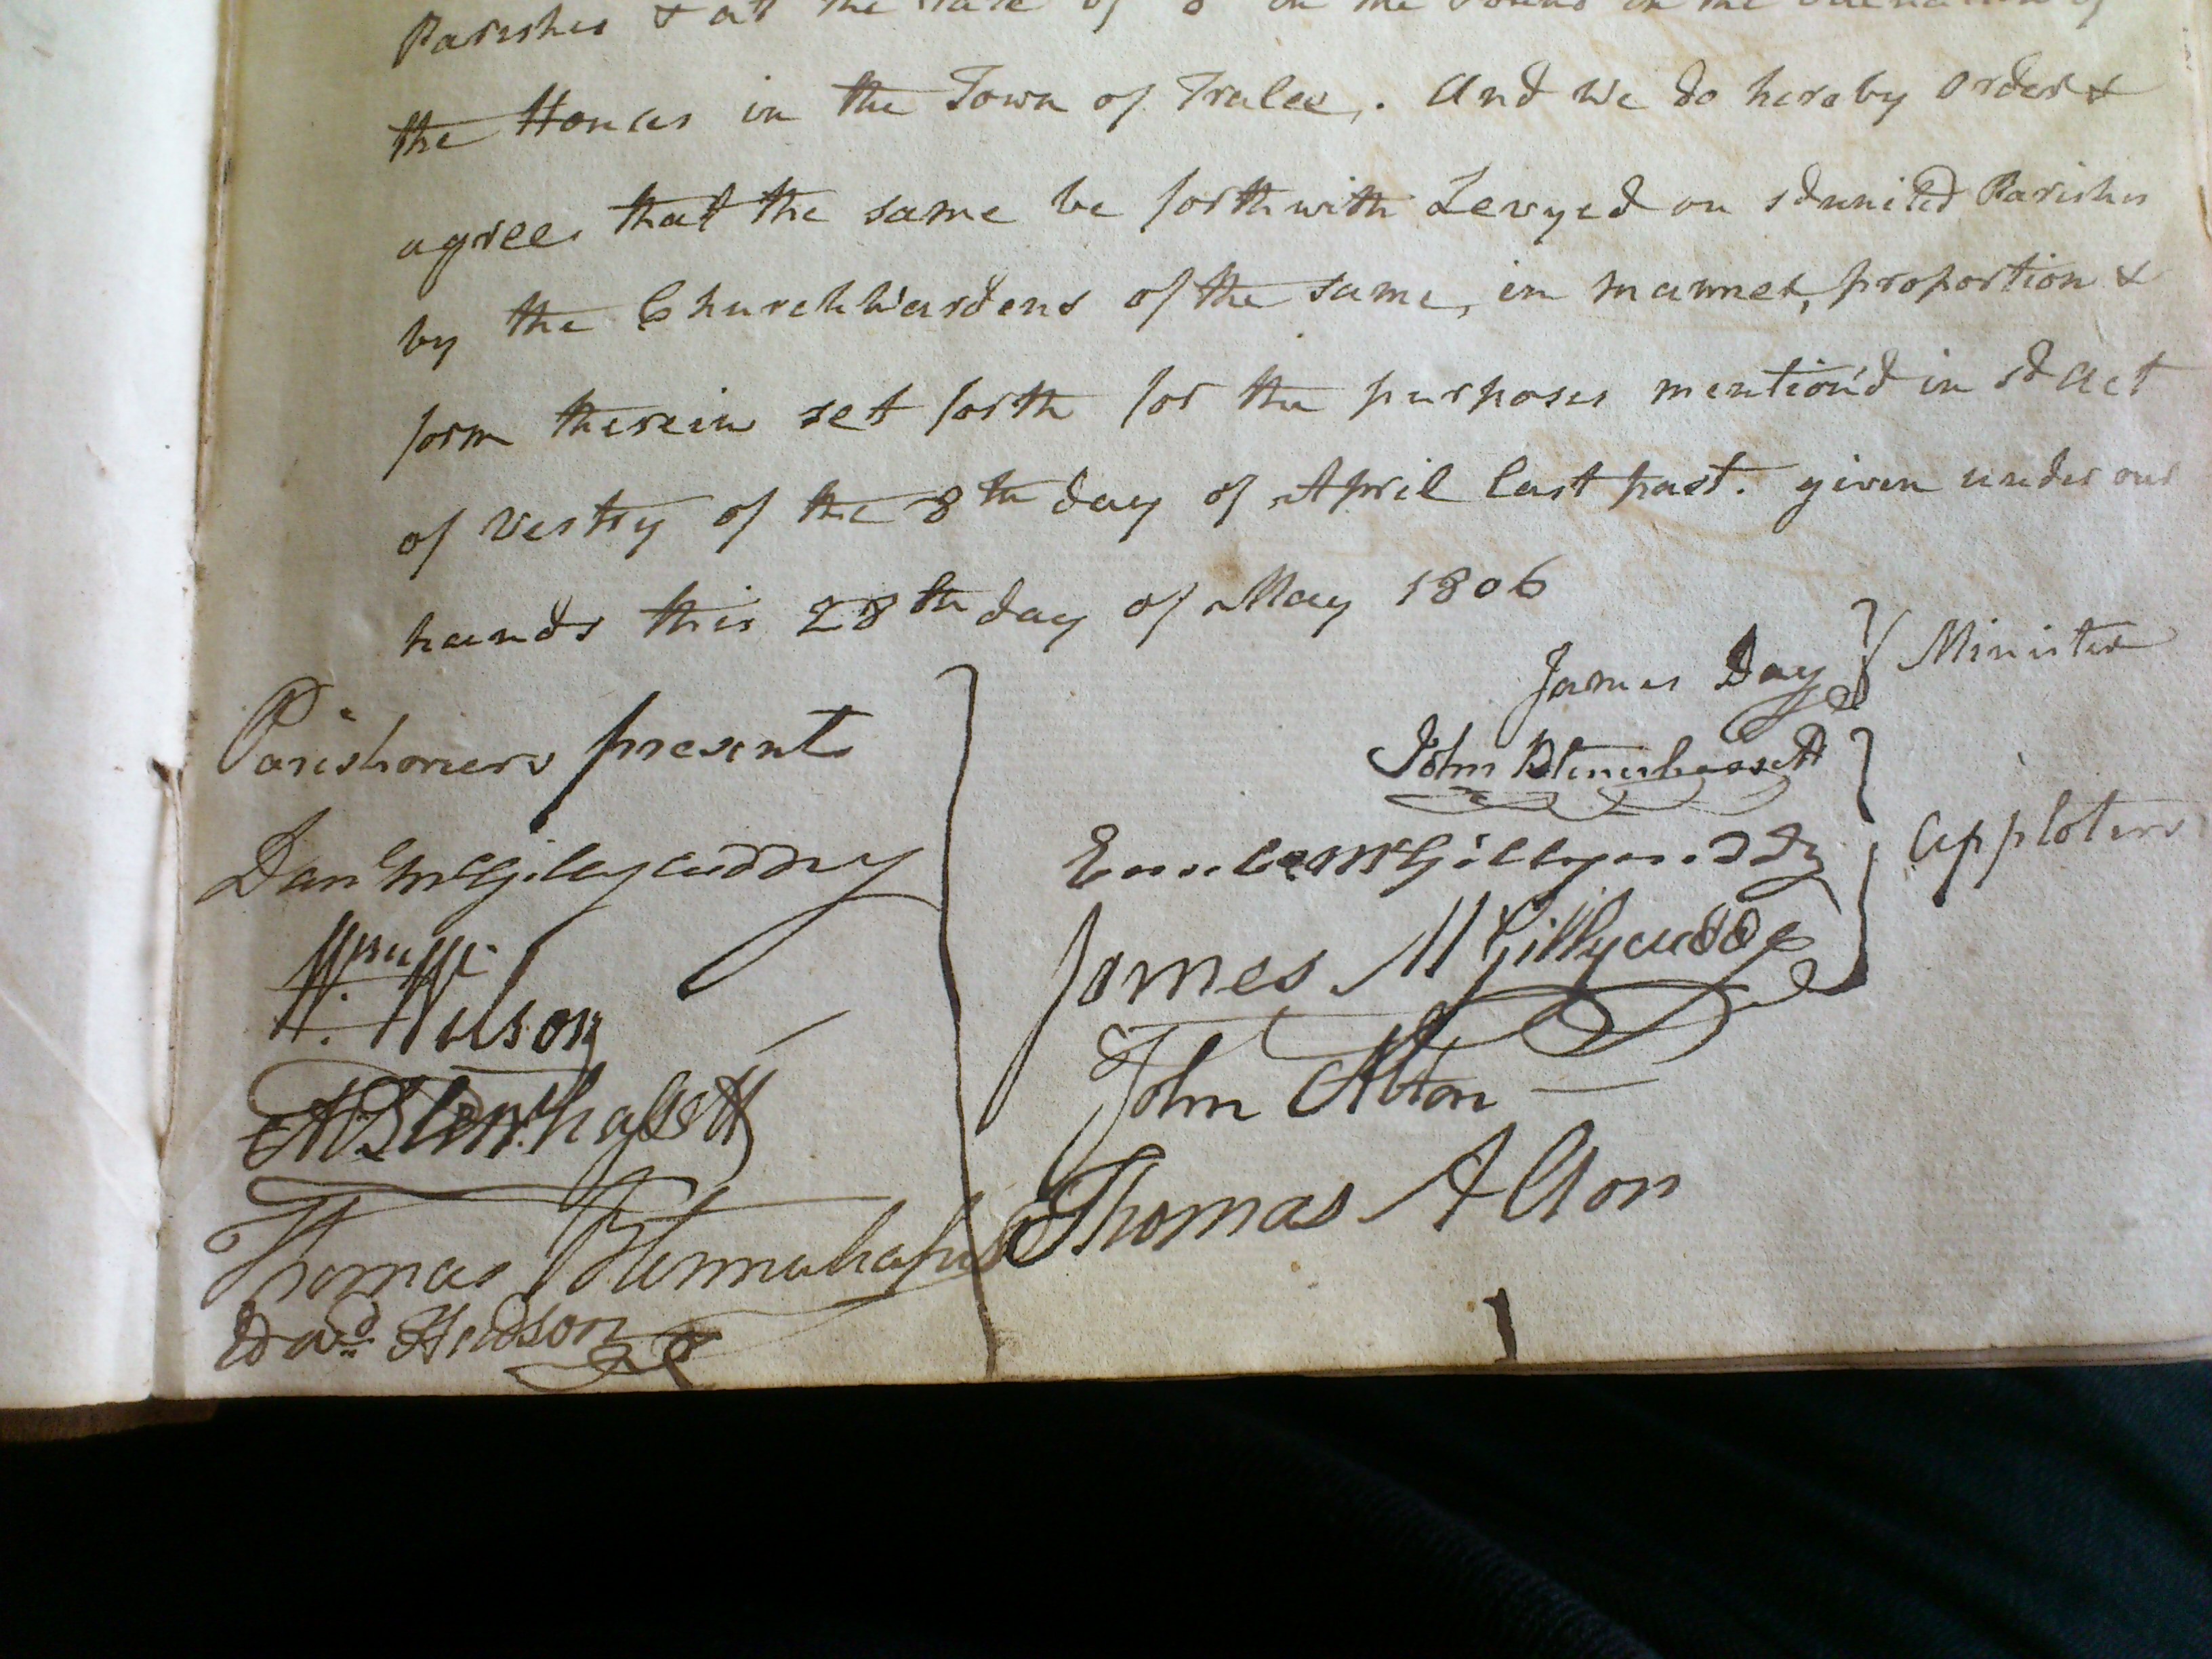 Parishes & at the rate of 8 in the Pound in the valuation of
the Houses in the Town of Tralee. And we do hereby order &
agree that the same be forthwith Levyed on sd united Parishes
by the Church Wardens of the same, in manner, proportion &
form therein set forth for the purposes mention'd in sd Act
of Vestry of the 8th day of April last past. given under our
hands this 28th day of May 1806
James Day } Minister
Parishioners present
John Blennerhassett
Applotters
Danl McGillycuddy
McGillycuddy
James McGillycuddy
W. Wilson
John Alton
A Blennerhassett
Thomas Alton
Thomas Blennerhasset
Edwd Hudson